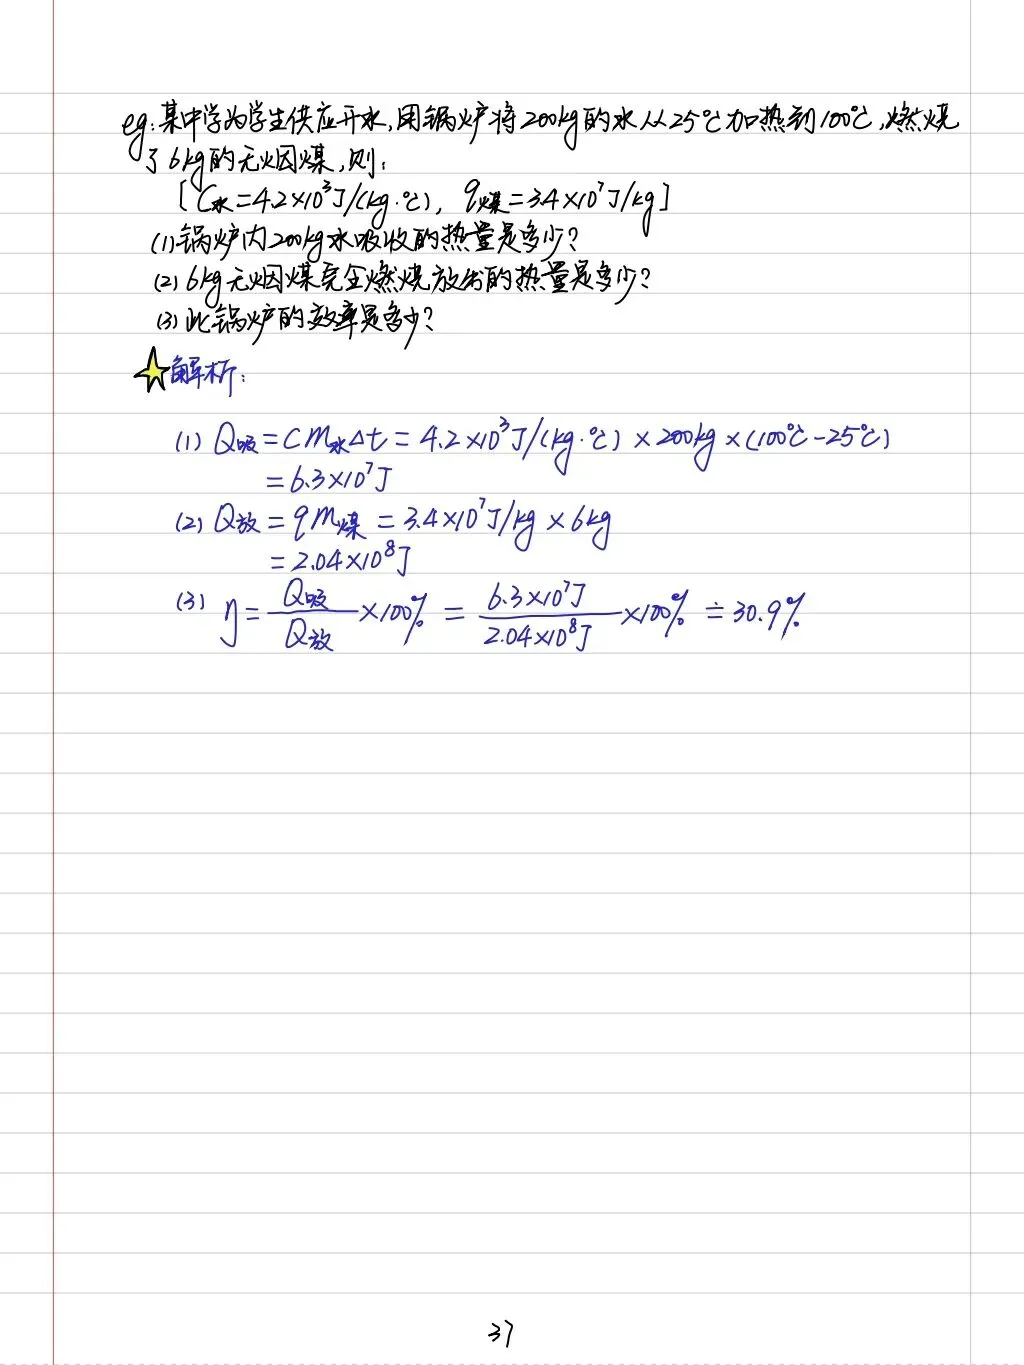 eg:某中学为学生供应开水,用锅炉将200kg的水从25℃加热到100℃,燃烧
了6kg的无烟煤,则:
[C水=4.2×10³J/(kg·℃), q煤=3.4×10⁷J/kg]
(1)锅炉内200kg水吸收的热量是多少?
(2)6kg无烟煤完全燃烧放出的热量是多少?
(3)此锅炉的效率是多少?
解析:
(1) Q吸=Cm水Δt=4.2×10³J/(kg·℃)×200kg×(100℃-25℃)
=6.3×10⁷J
(2) Q放=qm煤=3.4×10⁷J/kg×6kg
=2.04×10⁸J
(3) η=Q吸/Q放×100%=6.3×10⁷J/2.04×10⁸J×100%≐30.9%
37